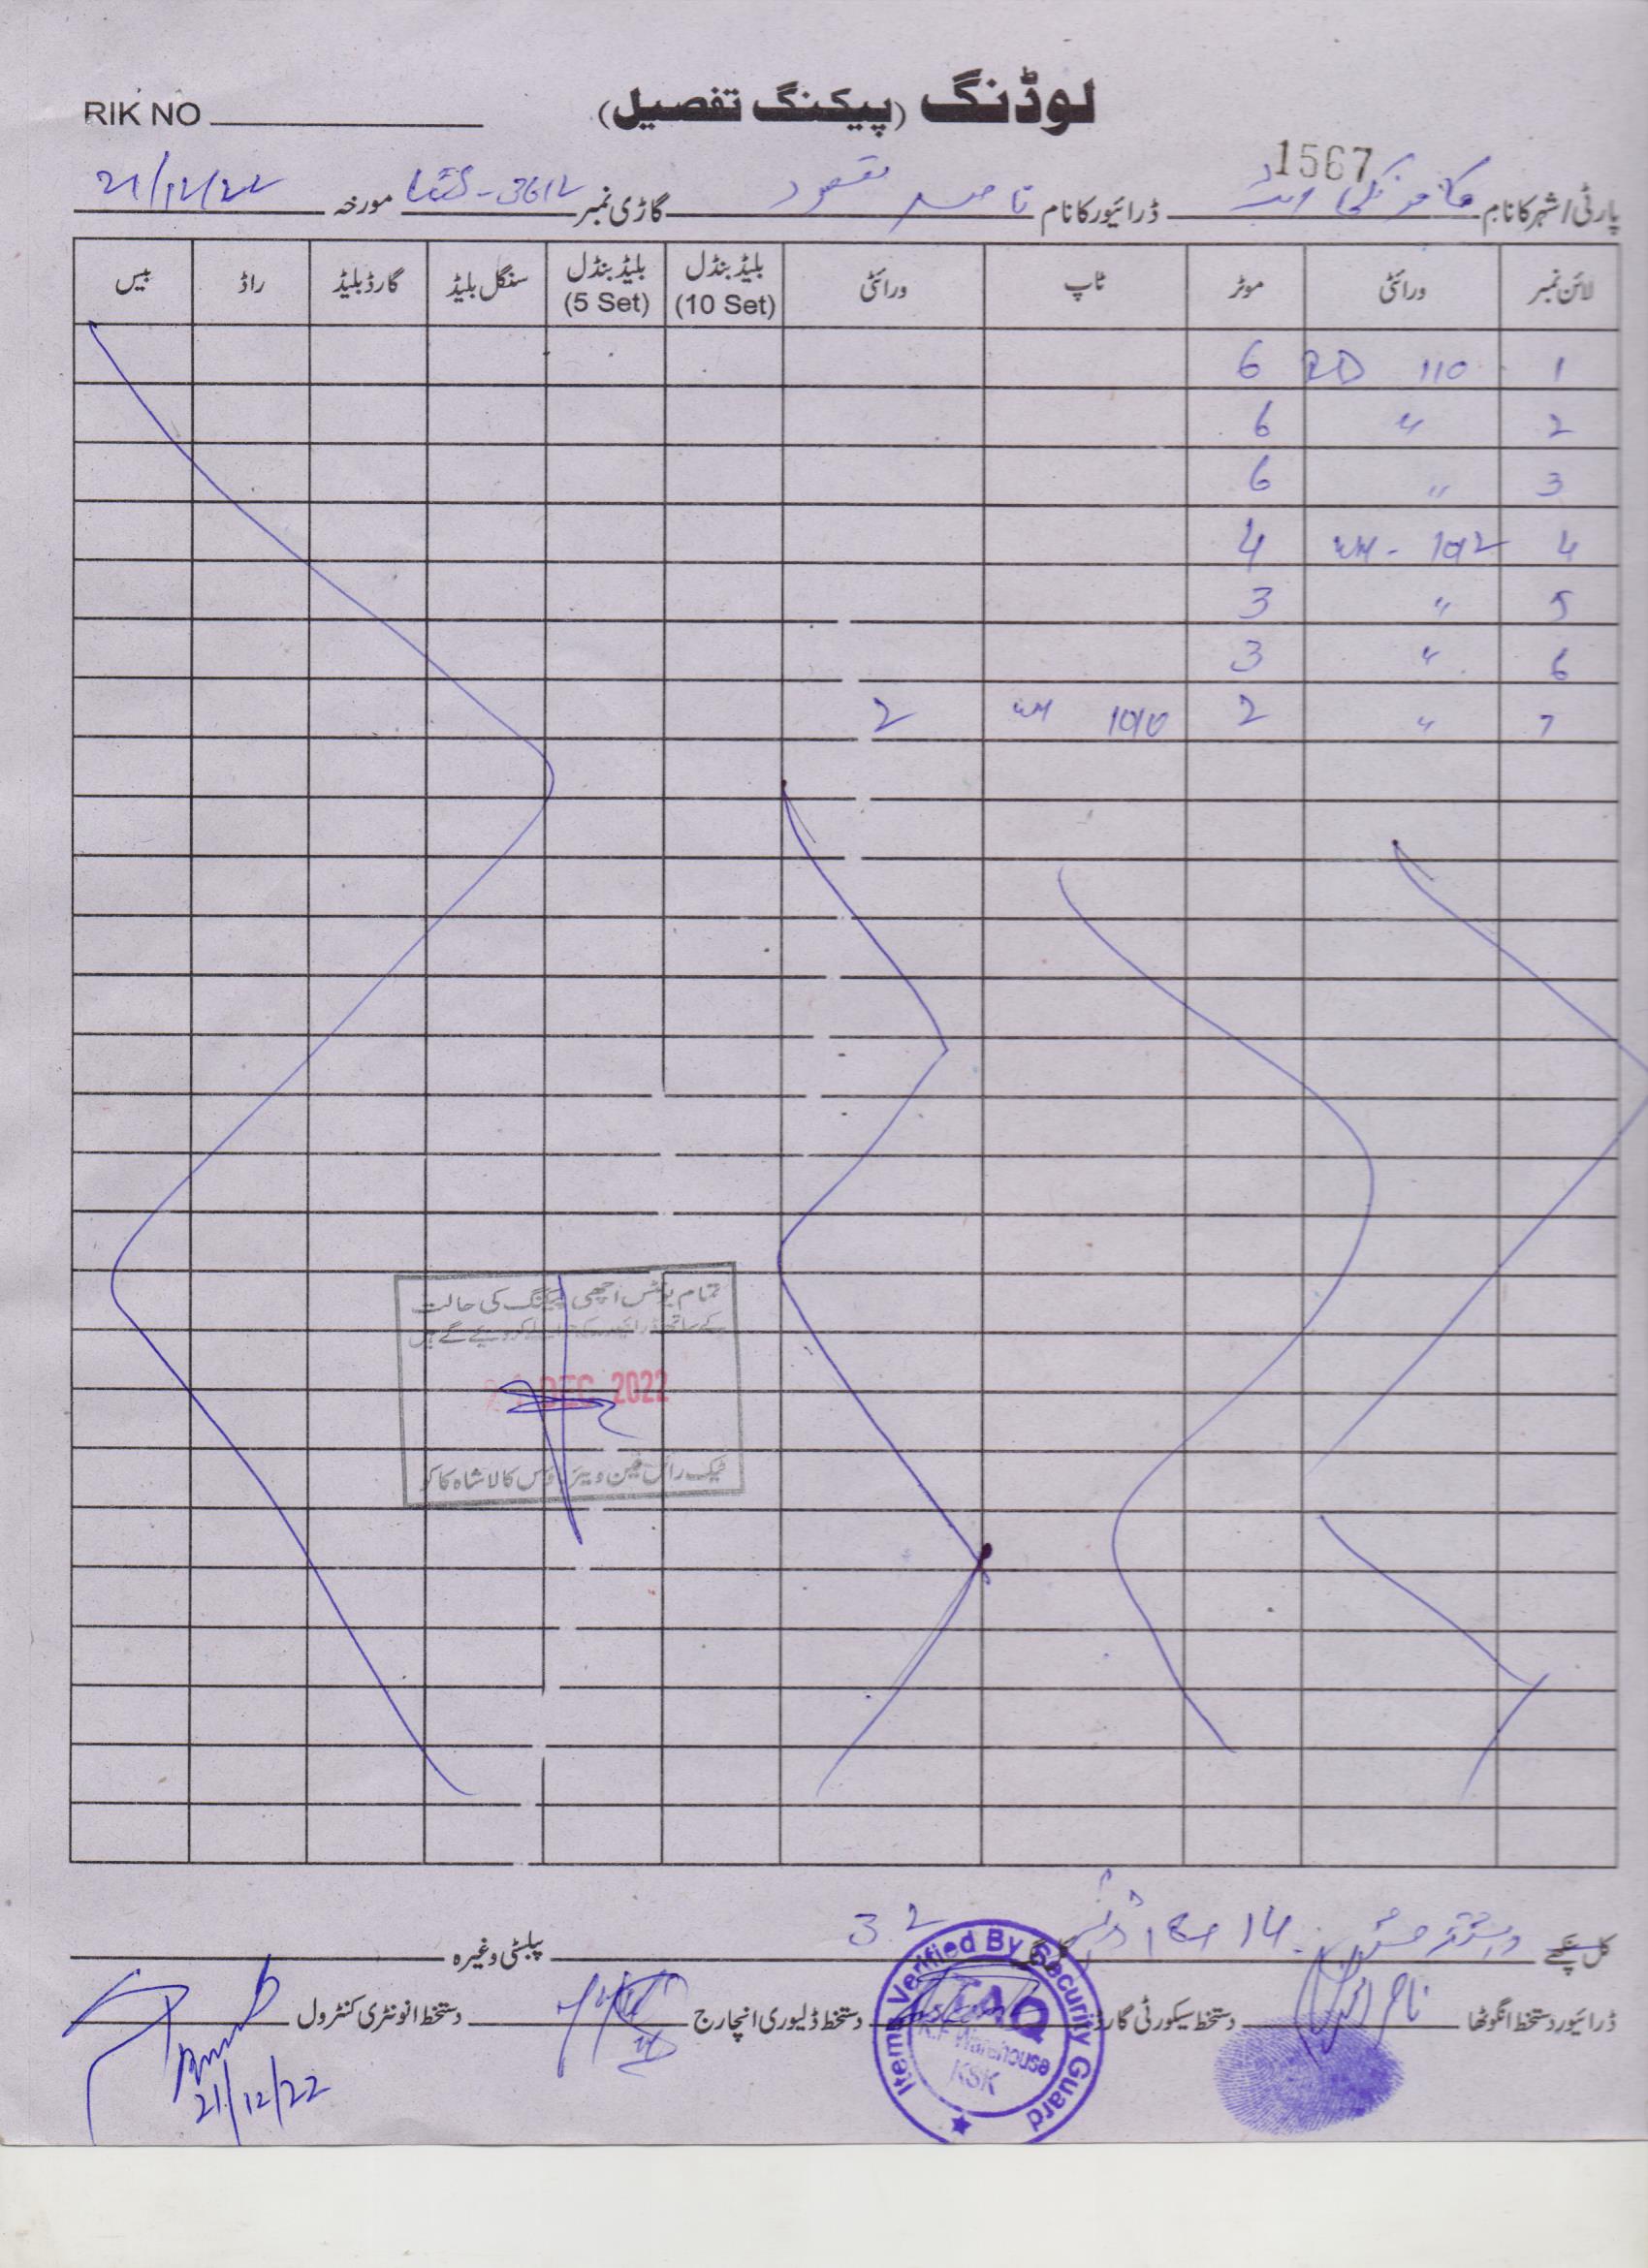 لوڈنگ (پیکنگ تفصیل)
RIK NO
1567
پارٹی/شہر کا نام ڈرائیور کا نام ناصر مقصود گاڑی نمبر 3612 مورخہ 21/12/22
لائن نمبر ورائٹی موٹر ٹاپ ورائٹی بلیڈ بنڈل (10 Set) بلیڈ بنڈل (5 Set) سنگل بلیڈ گارڈ بلیڈ راڈ بیس
1 RD 110 6
2 " 6
3 " 6
4 WM - 1012 4
5 " 3
6 " 3
7 " 2 WM 1010 2
تمام یونٹس اچھی پیکنگ کی حالت
کے ساتھ ڈرائیور کے حوالے کر دیئے گئے ہیں
21 DEC 2022
ٹیک رائل فین ویئر ہاؤس کالا شاہ کاکو
کل پنکھے 14 18 32 پبلسٹی وغیرہ
ڈرائیور دستخط انگوٹھا دستخط سیکورٹی گارڈ دستخط ڈلیوری انچارج دستخط انونٹری کنٹرول
Items Verified By Security Guard
TAQ
R.F Warehouse
KSK
21/12/22